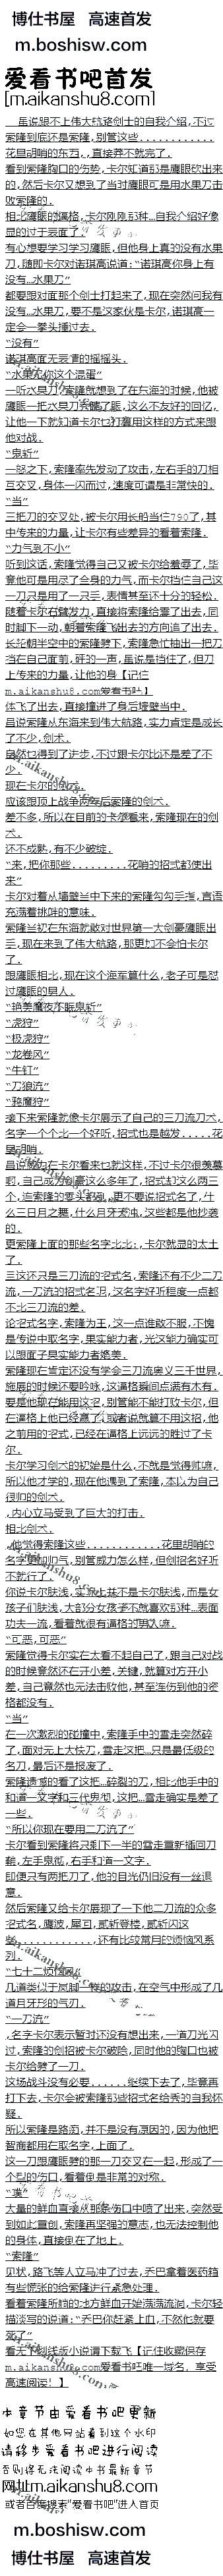 博仕书屋 高速首发
m.boshisw.com
爱看书吧首发
[m.aikanshu8.com]
虽说跟不上伟大航路剑士的自我介绍，不过
索隆到底还是索隆，别管这些............
花里胡哨的东西，，直接莽不就完了．
看到索隆胸口的伤势，卡尔知道那是鹰眼砍出来
的，然后卡尔又想到了当时鹰眼可是用水果刀击
败索隆的．
相比鹰眼的逼格，卡尔刚刚那种...自我介绍好像
显的过于表面了．
有心想要学习学习鹰眼，但他身上真的没有水果
刀，随即卡尔对诺琪高说道：“诺琪高你身上有
没有...水果刀”
都要跟对面那个剑士打起来了，现在突然问我有
没有...水果刀，要不是这家伙是卡尔，诺琪高一
定会一拳头捶过去．
“没有”
诺琪高面无表情的摇摇头．
“水果刀你这个混蛋”
一听水果刀索隆就想到了在东海的时候，他被
鹰眼一把水果刀完虐了跟，这么不友好的回忆，
让他一下就知道卡尔也打算用这样的方式来跟
他对战．
“鬼斩”
一怒之下，索隆率先发动了攻击，左右手的刀相
互交叉，身体一闪而过，速度可谓是非常快的．
“当”
三把刀的交叉处，被卡尔用长船当住790了，其
中传来的力量，让卡尔有些差异的看着索隆．
“力气到不小”
听到这话，索隆觉得自己又被卡尔给羞辱了，毕
竟他可是用尽了全身的力气，而卡尔挡住自己这
一刀只是用了一只手，表情甚至还十分的轻松．
随着卡尔右臂发力，直接将索隆给震了出去，同
时脚下一动，朝着索隆飞出去的方向追了出去．
长船朝半空中的索隆劈下，索隆急忙抽出一把刀
挡在自己面前，砰的一声，虽说是挡住了，但刀
上传来的力量，让他的身【记住
m.aikanshu8.com爱看书吧】
体飞了出去，直接撞进了身后墙壁当中．
虽说索隆从东海来到伟大航路，实力肯定是成长
了不少，剑术．
自然也得到了进步，不过跟卡尔比还是差了不
少．
现在卡尔的剑术．
应该跟顶上战争两年后索隆的剑术．
差不多，所以在目前的卡尔看来，索隆现在的剑
术．
还不成熟，有不少破绽．
“来，把你那些.........花哨的招式都使出
来”
卡尔对着从墙壁当中下来的索隆勾勾手指，言语
充满着挑衅的意味．
索隆当初在东海就敢对世界第一大剑豪鹰眼出
手，现在来到了伟大航路，那更加不会怕卡尔
了．
跟鹰眼相比，现在这个海军算什么，老子可是怼
过鹰眼的男人．
“艳美魔夜不眠鬼斩”
“虎狩”
“极虎狩”
“龙卷风”
“牛钉”
“刀狼流”
“鸦魔狩”
接下来索隆就像卡尔展示了自己的三刀流刀术，
名字一个个比一个好听，招式也是越发.....花
里胡哨．
虽说威力在卡尔看来也就这样，不过卡尔很羡慕
啊，自己成为剑豪这么多年了，招式却这么两三
个，追索隆的零头都没，更不要说招式名了，什
么三日月之舞，什么月牙天冲，这些都是他抄袭
的．
更索隆上面的那些名字比比：，卡尔就显的太土
了．
三这还只是三刀流的招式名，索隆还有不少二刀
流，一刀流的招式名呢，这名字好听程度一点都
不比三刀流的差．
论招式名字，索隆为王，这一点谁敢不服，不愧
是传说中取名字，果实能力者，光这能力确实可
以跟面子果实能力者媲美．
索隆现在肯定还没有学会三刀流奥义三千世界，
施展的时候还要吟咏，这逼格瞬间点满有木有．
要是他现在能用这招，别管能不能打败卡尔，但
在逼格上他已经赢了，或者说就算不用这招，他
之前用的招式，已经在逼格上远远的胜过了卡
尔．
卡尔学习剑术的初始是什么，不就是觉得帅嘛，
所以他才学的，现在他遇到了索隆，本以为自己
很帅的剑术．
，内心立马受到了巨大的打击．
相比剑术．
，他觉得索隆这些............花里胡哨的
名字更加帅气，别管威力怎么样，但剑招名好听
不就行了．
你说卡尔肤浅，实际上并不是卡尔肤浅，而是女
孩子们肤浅，大部分女孩子不就喜欢那种...表面
功夫一流，看着就很有逼格的男人嘛．
“可恶，可恶”
索隆觉得卡尔实在太看不起自己了，跟自己对战
的时候竟然还在开小差，关键，就算对方开小
差，自己竟然也无法击败他，甚至连伤到他的资
格都没有．
“当”
在一次激烈的碰撞中，索隆手中的雪走突然碎
了，面对无上大快刀，雪走这把...只是最低级的
名刀，最后还是报废了．
索隆遗憾的看了这把...碎裂的刀，相比他手中的
和道一文字和三代鬼彻，这把...雪走确实是差了
一些．
“所以你现在要用二刀流了”
卡尔看到索隆将只剩下一半的雪走重新插回刀
鞘，左手鬼彻，右手和道一文字．
即便只有两把刀了，他的目光仍旧没有一丝退
意．
然后索隆又给卡尔展现了一下他二刀流的众多
招式名，鹰波，犀回，贰斩登楼，贰斩闪这
些............，还有比较常用的烦恼风系
列．
“七十二烦恼风”
几道类似于岚脚一样的攻击，在空气中形成了几
道月牙形的气刃．
“一刀流”
，名字卡尔表示暂时还没有想出来，一道刀光闪
过，索隆的剑招被卡尔破哈，同时他的胸口也被
卡尔给劈了一刀．
这场战斗没有必要......继续下去了，毕竟再
打下去，卡尔会被索隆那些招式名给秀的自我怀
疑．
所以索隆是路痴，并不是没有原因的，因为他把
智商都用在取名字，上面了．
这一刀跟鹰眼劈的那一刀交叉在一起，形成了一
个叉的伤口，看着倒是非常的对称．
“噗”
大量的鲜血直接从那条伤口中喷了出来，突然受
到如此重创，索隆再坚强的意志，也无法控制他
的身体，直接倒在了地上．
“索隆”
见状，路飞等人立马冲了过去，乔巴拿着医药箱
有些慌张的给索隆进行紧急处理．
看着索隆所躺的地方鲜血开始满满流淌，卡尔轻
描淡写的说道：“乔巴你赶紧上血，不然他就要
死了”
看无下划线版小说请下载飞【记住收藏保存
m.aikanshu8.com爱看书吧唯一域名，享受
高速阅读！】
本章节由爱看书吧更新
如您在其他网站看到这个水印
请移步爱看书吧进行阅读
否则将无法阅读本书最新章节
网址m.aikanshu8.com
或者百度搜索“爱看书吧”进入首页
m.boshisw.com
博仕书屋 高速首发